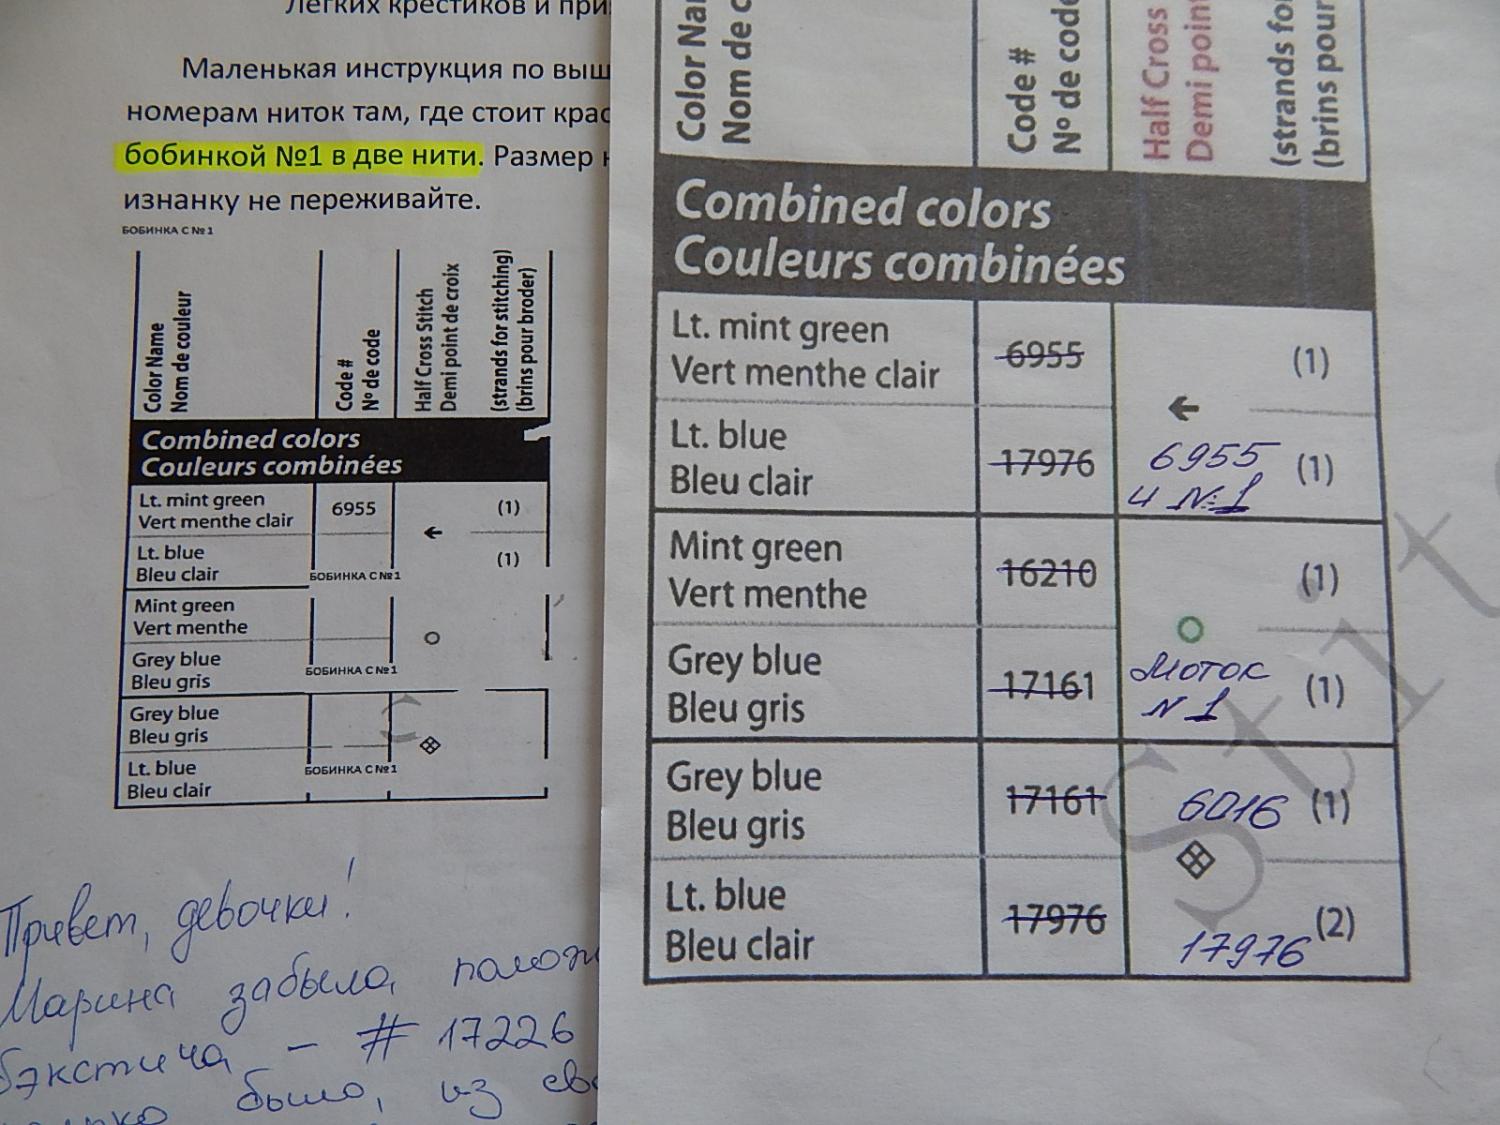 Легких крестиков и
Маленькая инструкция по
номерам ниток там, где стоит
бобинкой №1 в две нити. Размер
изнанку не переживайте.
БОБИНКА С №1
Color Name
Nom de couleur
Code #
Nº de code
Half Cross Stitch
Demi point de croix
(strands for stitching)
(brins pour broder)
Combined colors
Couleurs combinées
Lt. mint green
Vert menthe clair
6955
(1)
Lt. blue
Bleu clair
БОБИНКА С №1
(1)
Mint green
Vert menthe
Grey blue
Bleu gris
БОБИНКА С №1
Grey blue
Bleu gris
Lt. blue
Bleu clair
БОБИНКА С №1
Привет, девочки!
Марина забыла
бэкстича - # 17226
было, из
Color
Nom de
Code #
Nº de code
Half Cross
Demi point
(strands
(brins pour
Combined colors
Couleurs combinées
Lt. mint green
Vert menthe clair
6955
(1)
Lt. blue
Bleu clair
17976
6955
и №1
(1)
Mint green
Vert menthe
16210
(1)
Grey blue
Bleu gris
17161
Моток
N 1
(1)
Grey blue
Bleu gris
17161
6016
(1)
Lt. blue
Bleu clair
17976
17976
(2)